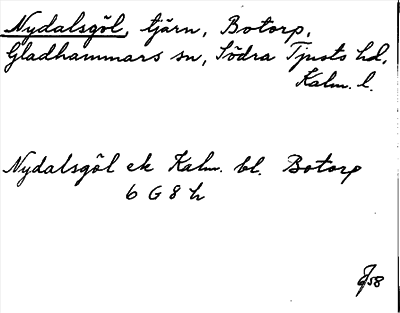 Nydalsgöl, tjärn, Botorp,
Gladhammars sn, Södra Tjusts hd,
Kalm. l.
Nydalsgöl ek Kalm. bl. Botorp
6 G 8 h
58